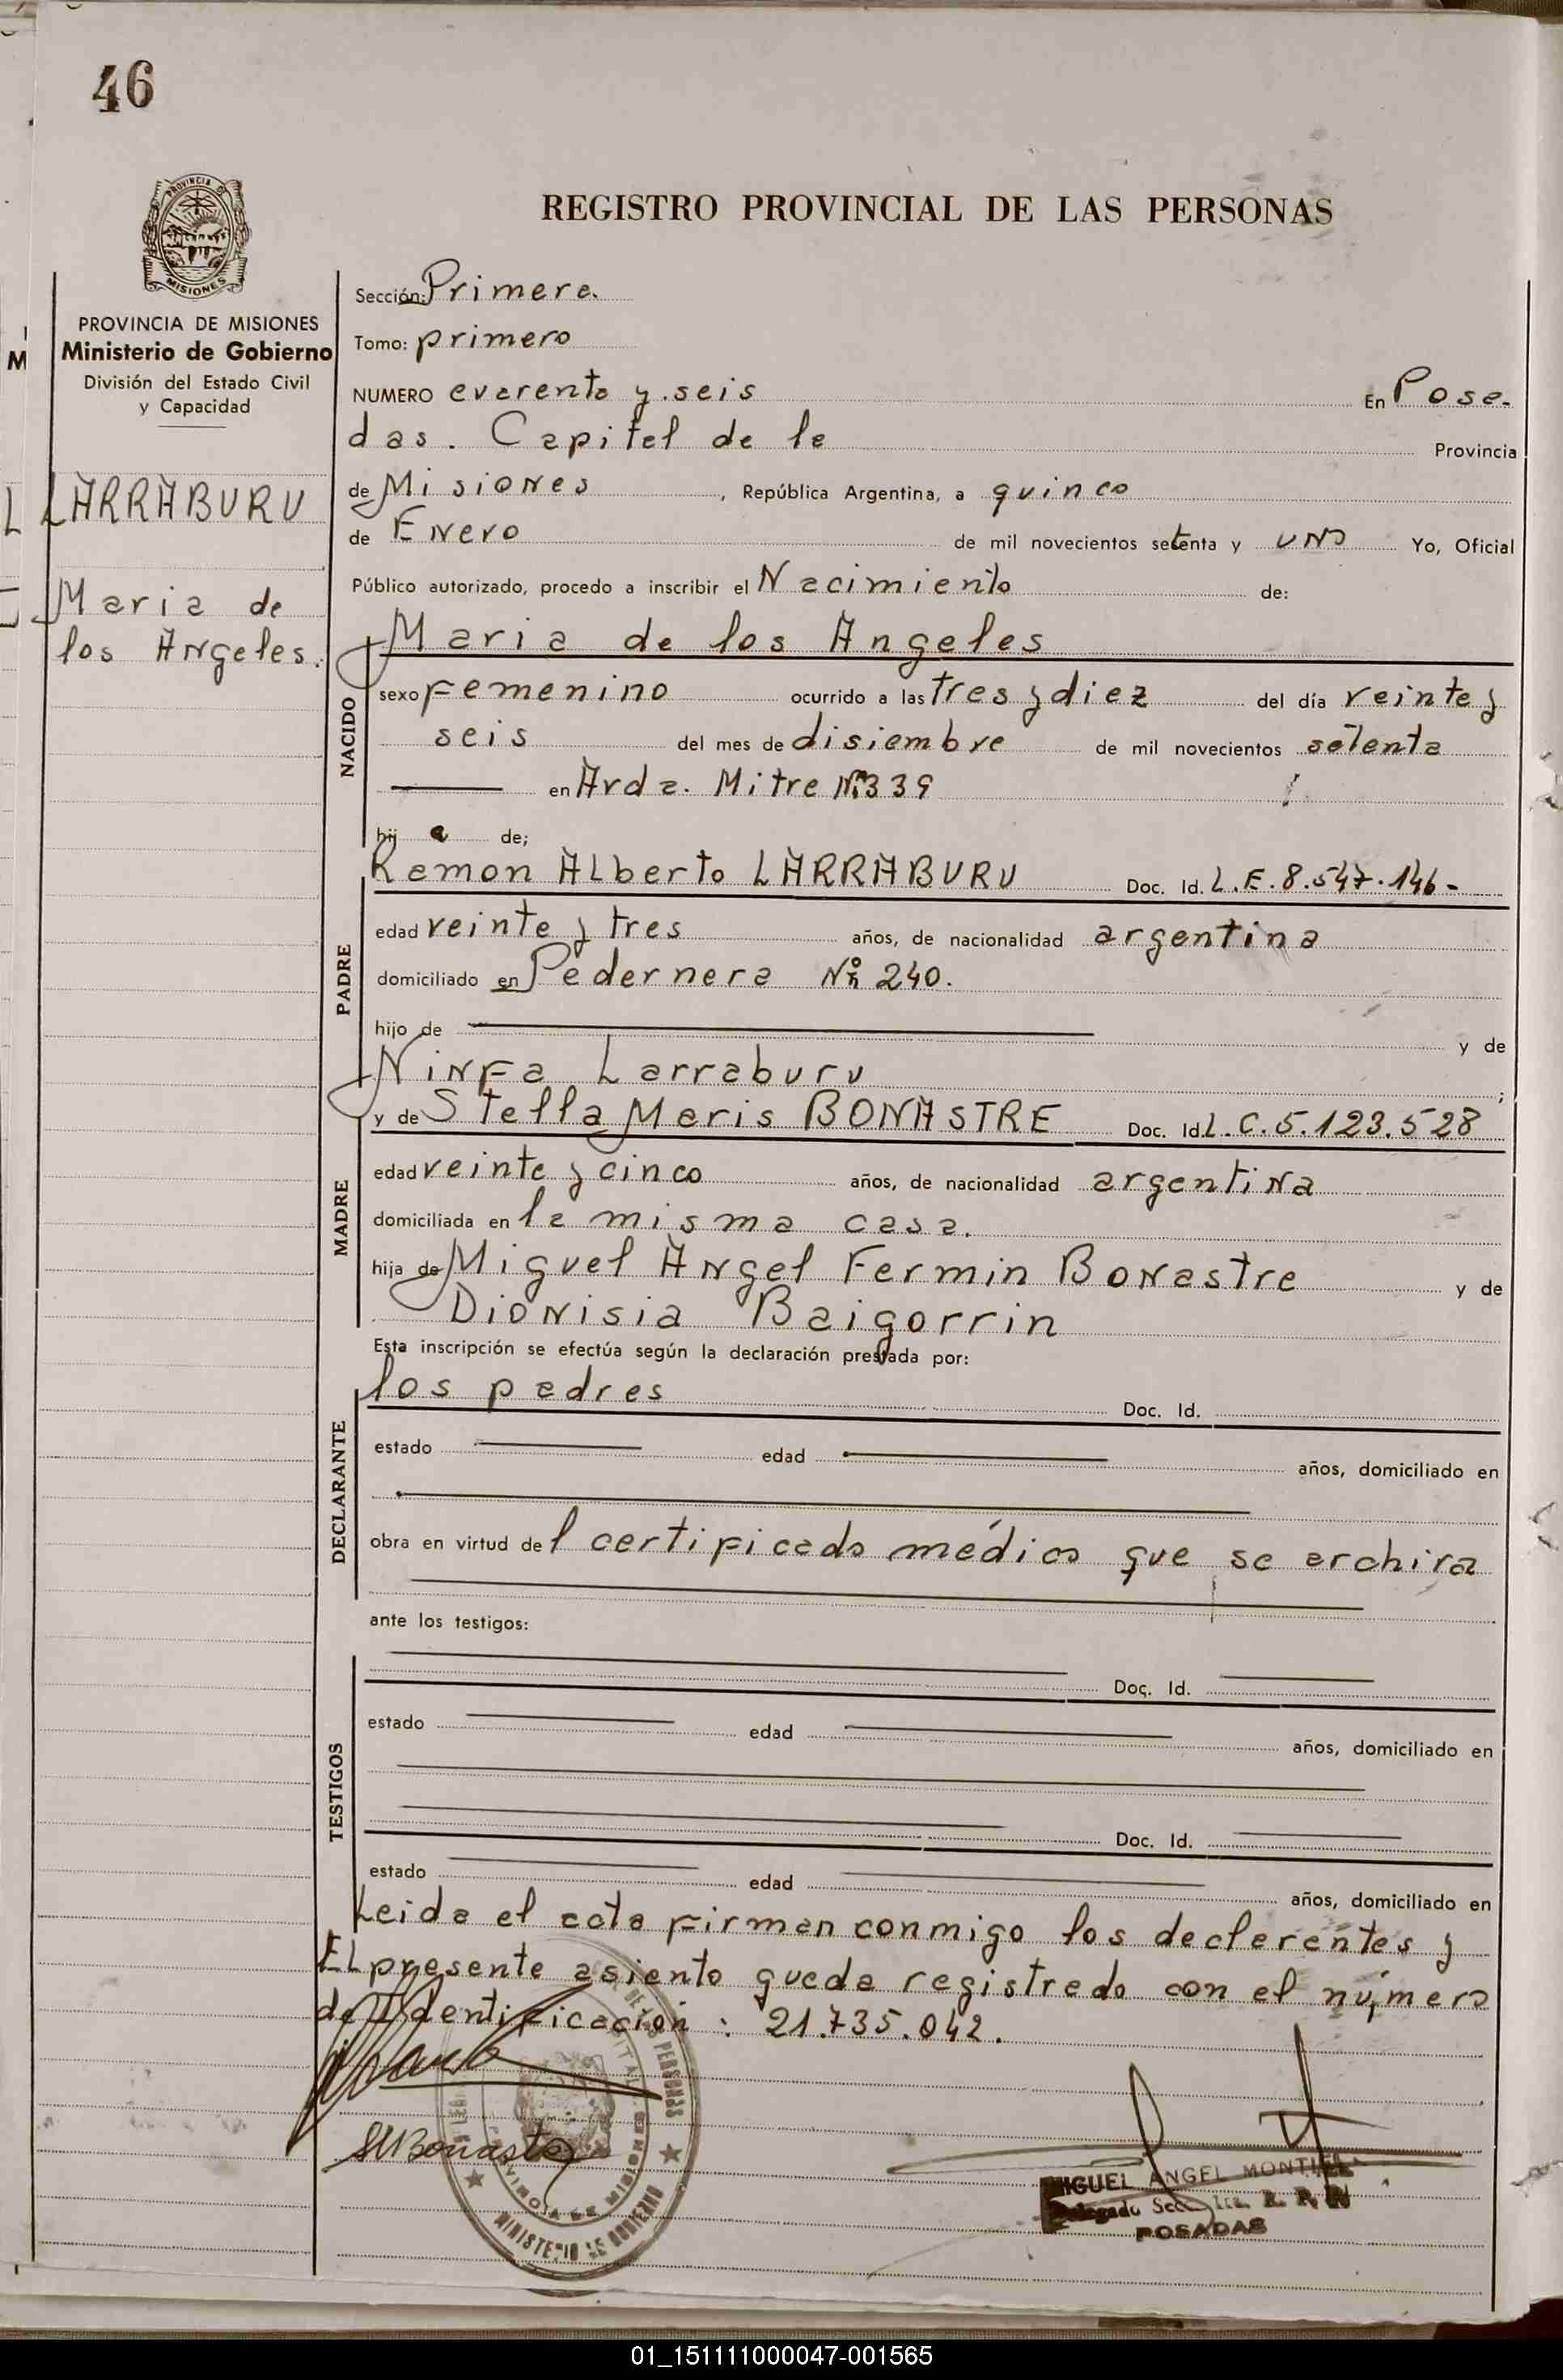 46
PROVINCIA
MISIONES
REGISTRO PROVINCIAL DE LAS PERSONAS
PROVINCIA DE MISIONES
Ministerio de Gobierno
División del Estado Civil
y Capacidad
LARRABURU
Maria de
los Angeles.
Sección: Primera.
Tomo: primero
NUMERO cuarenta y seis En Posa-
das. Capital de la Provincia
de Misiones, República Argentina, a quince
de Enero de mil novecientos setenta y uno Yo, Oficial
Público autorizado, procedo a inscribir el Nacimiento de:
NACIDO
Maria de los Angeles
sexo Femenino ocurrido a las tres y diez del día veinte y
seis del mes de disiembre de mil novecientos setenta
en Avda. Mitre Nº 339
hij a de;
PADRE
Ramon Alberto LARRABURU Doc. Id. L.E. 8.547.146-
edad veinte y tres años, de nacionalidad argentina
domiciliado en Pedernera Nº 240.
hijo de y de
Ninfa Larraburu ;
MADRE
y de Stella Maris BONASTRE Doc. Id. L.C. 5.123.528
edad veinte y cinco años, de nacionalidad argentina
domiciliada en la misma casa.
hija de Miguel Angel Fermin Bonastre y de
Dionisia Baigorrin
Esta inscripción se efectúa según la declaración prestada por:
DECLARANTE
los padres Doc. Id.
estado edad años, domiciliado en
obra en virtud del certificado médico que se archiva
ante los testigos:
TESTIGOS
Doc. Id.
estado edad años, domiciliado en
Doc. Id.
estado edad años, domiciliado en
Leida el acta firman conmigo los declarentes y
El presente asiento queda registrado con el número
de Identificación: 21.735.042.
SMBonastre
MINISTERIO DE GOBIERNO
PROVINCIA DE MISIONES
MIGUEL ANGEL MONTIEL
Delegado
POSADAS
01_151111000047-001565